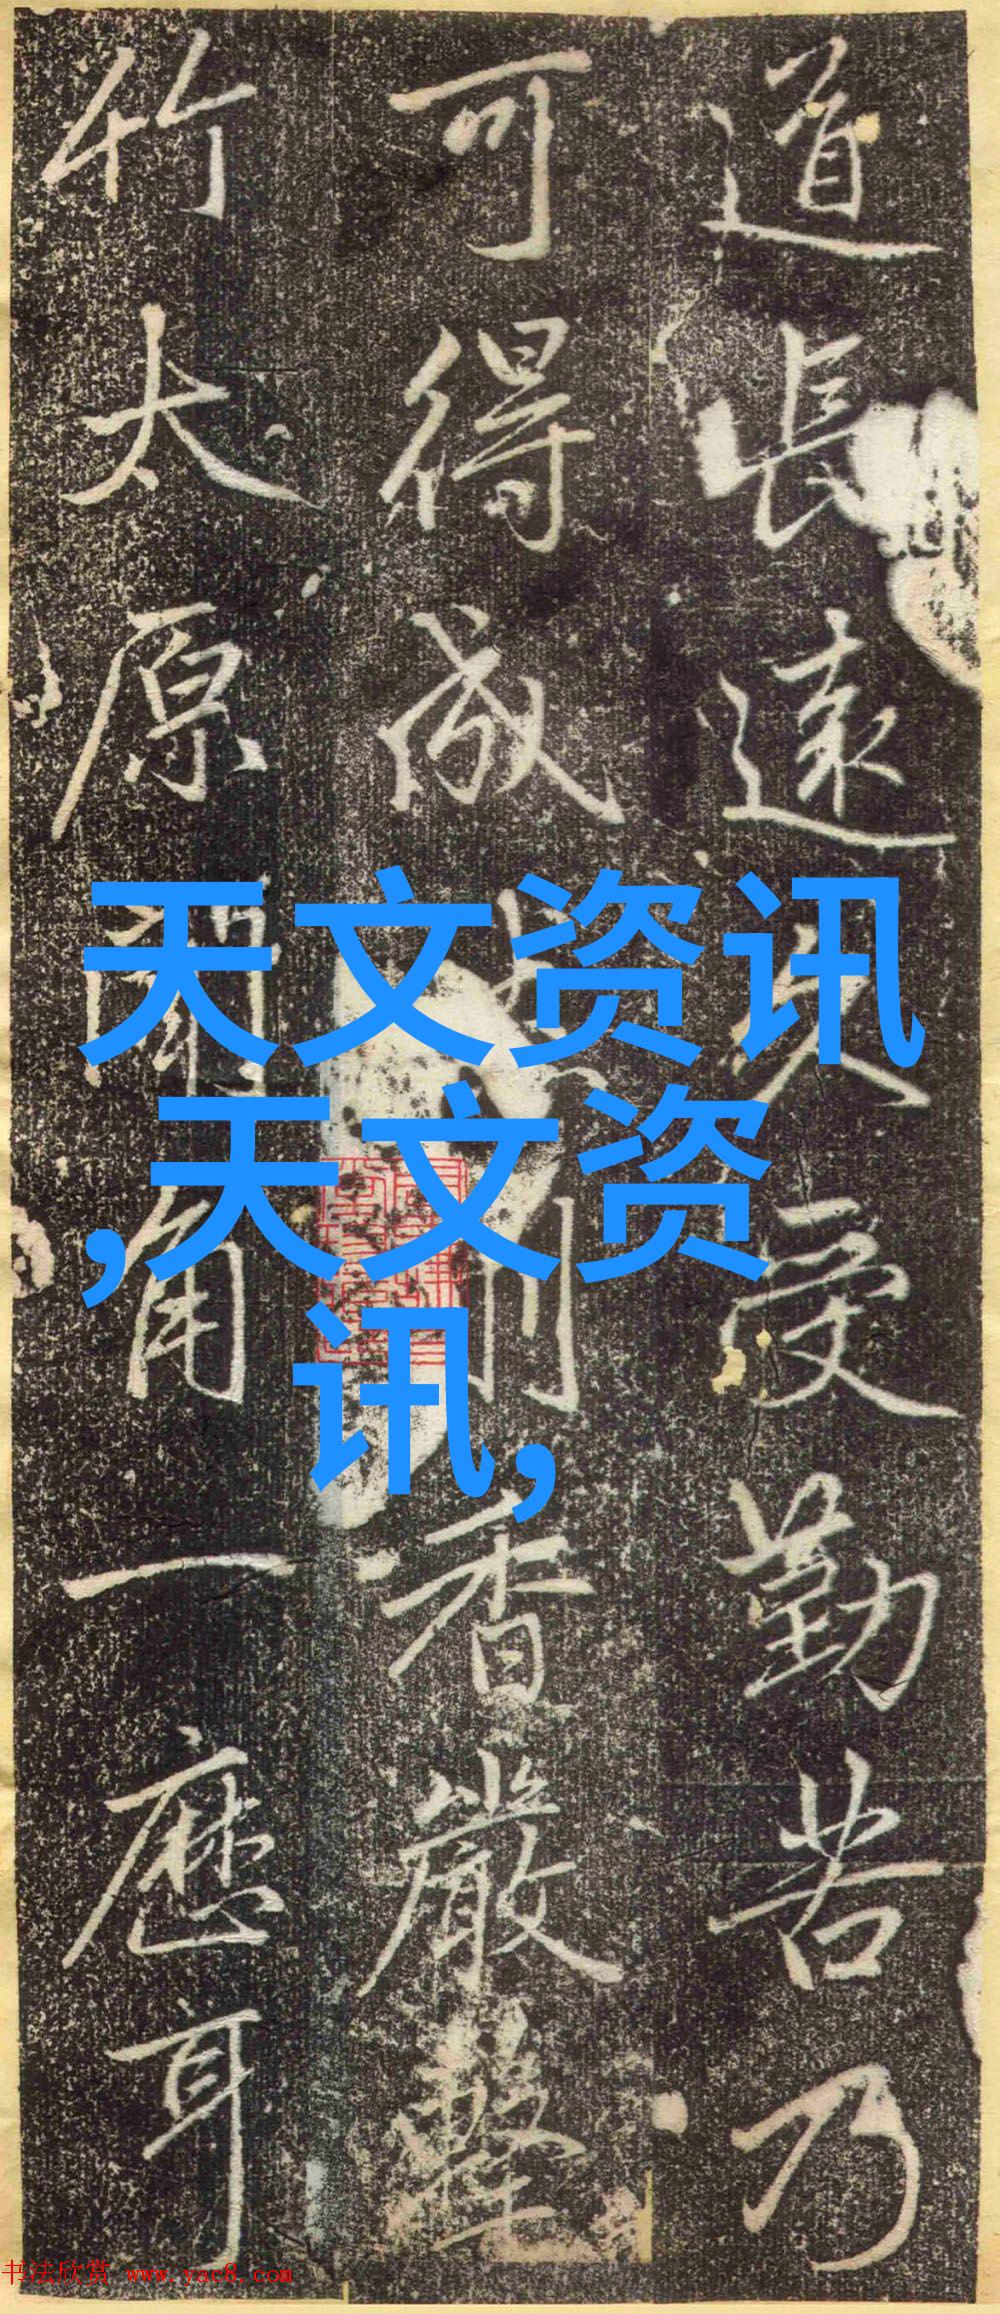 道長遠久受勤苦乃
可得成香嚴擊
竹太原聞角一應耳
天文资讯
,天文资
讯,
书法欣赏 www.yac8.com